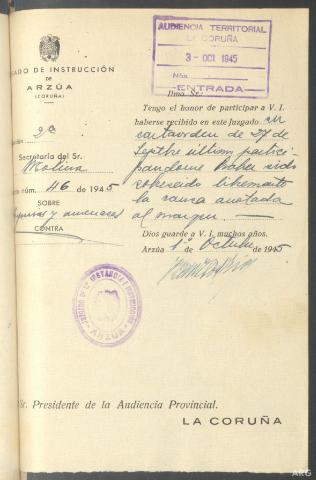 AUDIENCIA TERRITORIAL
LA CORUÑA
3 - OCT 1945
Núm.
ENTRADA
GADO DE INSTRUCCIÓN
DE
ARZÚA
(CORUÑA)
2ª
Secretaría del Sr.
Molina
núm. 46 de 1945
SOBRE
y amenazas
CONTRA
Ilmo. Sr.:
Tengo el honor de participar a V. I.
haberse recibido en este Juzgado su
cartaorden de 27 de
Septbre último partici
pándome haber sido
la causa anotada
al margen. —
Dios guarde a V. I. muchos años.
Arzúa 1º de Octubre de 1945
ARZÚA
Sr. Presidente de la Audiencia Provincial.
LA CORUÑA
ARG